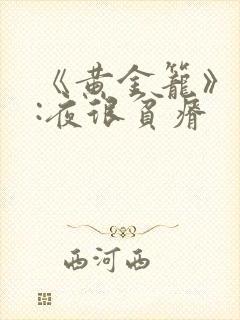 《黄金笼》
:夜很贫瘠
西河西